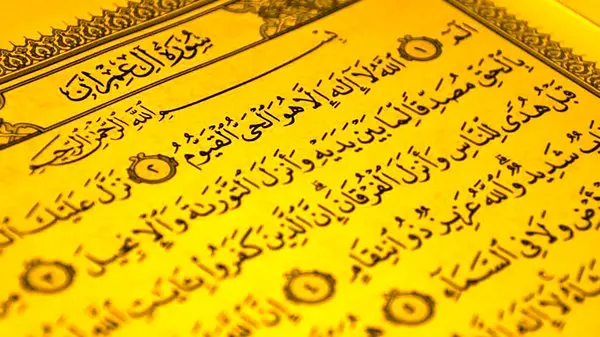 سُورَةُ آلِ عِمْرَانَ
بِسْمِ ٱللَّهِ ٱلرَّحْمَٰنِ ٱلرَّحِيمِ
الٓمٓ ١ ٱللَّهُ لَآ إِلَٰهَ إِلَّا هُوَ ٱلْحَىُّ ٱلْقَيُّومُ ٢ نَزَّلَ عَلَيْكَ
بِٱلْحَقِّ مُصَدِّقًا لِّمَا بَيْنَ يَدَيْهِ وَأَنزَلَ ٱلتَّوْرَىٰةَ وَٱلْإِنجِيلَ ٣ مِن
قَبْلُ هُدًى لِّلنَّاسِ وَأَنزَلَ ٱلْفُرْقَانَ ۗ إِنَّ ٱلَّذِينَ كَفَرُوا۟ بِـَٔايَٰتِ ٱللَّهِ
شَدِيدٌ ۗ وَٱللَّهُ عَزِيزٌ ذُو ٱنتِقَامٍ ٤ إِنَّ
وَلَا فِى ٱلسَّمَآءِ ٥
لَآ إِلَٰهَ